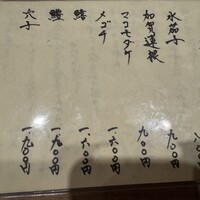 水茄子 九〇〇円
加賀蓮根 九〇〇円
マコモダケ 九〇〇円
メゴチ 一、六〇〇円
鱚 一、六〇〇円
鱧 一、九〇〇円
穴子 一、九〇〇円